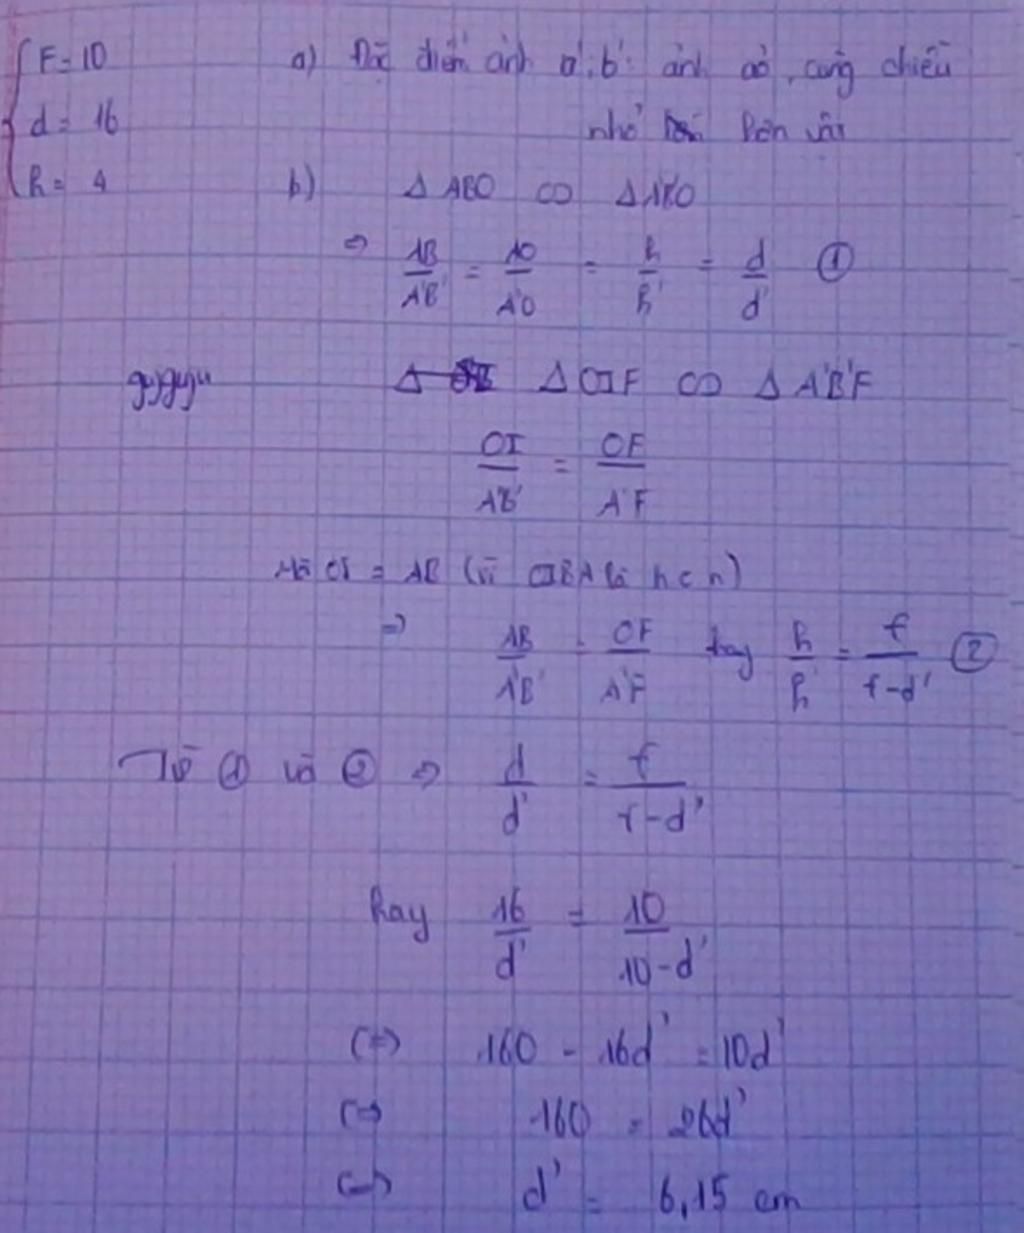 F = 10 a) Đặc điểm ảnh A'B': ảnh ảo, cùng chiều
d = 16 nhỏ hơn vật
h = 4 b) Δ ABO ∽ Δ A'B'O
=> AB/A'B' = AO/A'O = h/h' = d/d' ①
Δ OIF ∽ Δ A'B'F
OI/A'B' = OF/A'F
Mà OI = AB (vì OIBA là hcn)
=> AB/A'B' = OF/A'F hay h/h' = f/f-d' ②
Từ ① và ② => d/d' = f/f-d'
hay 16/d' = 10/10-d'
(=) 160 - 16d' = 10d'
(=) 160 = 26d'
(=) d' = 6,15 cm